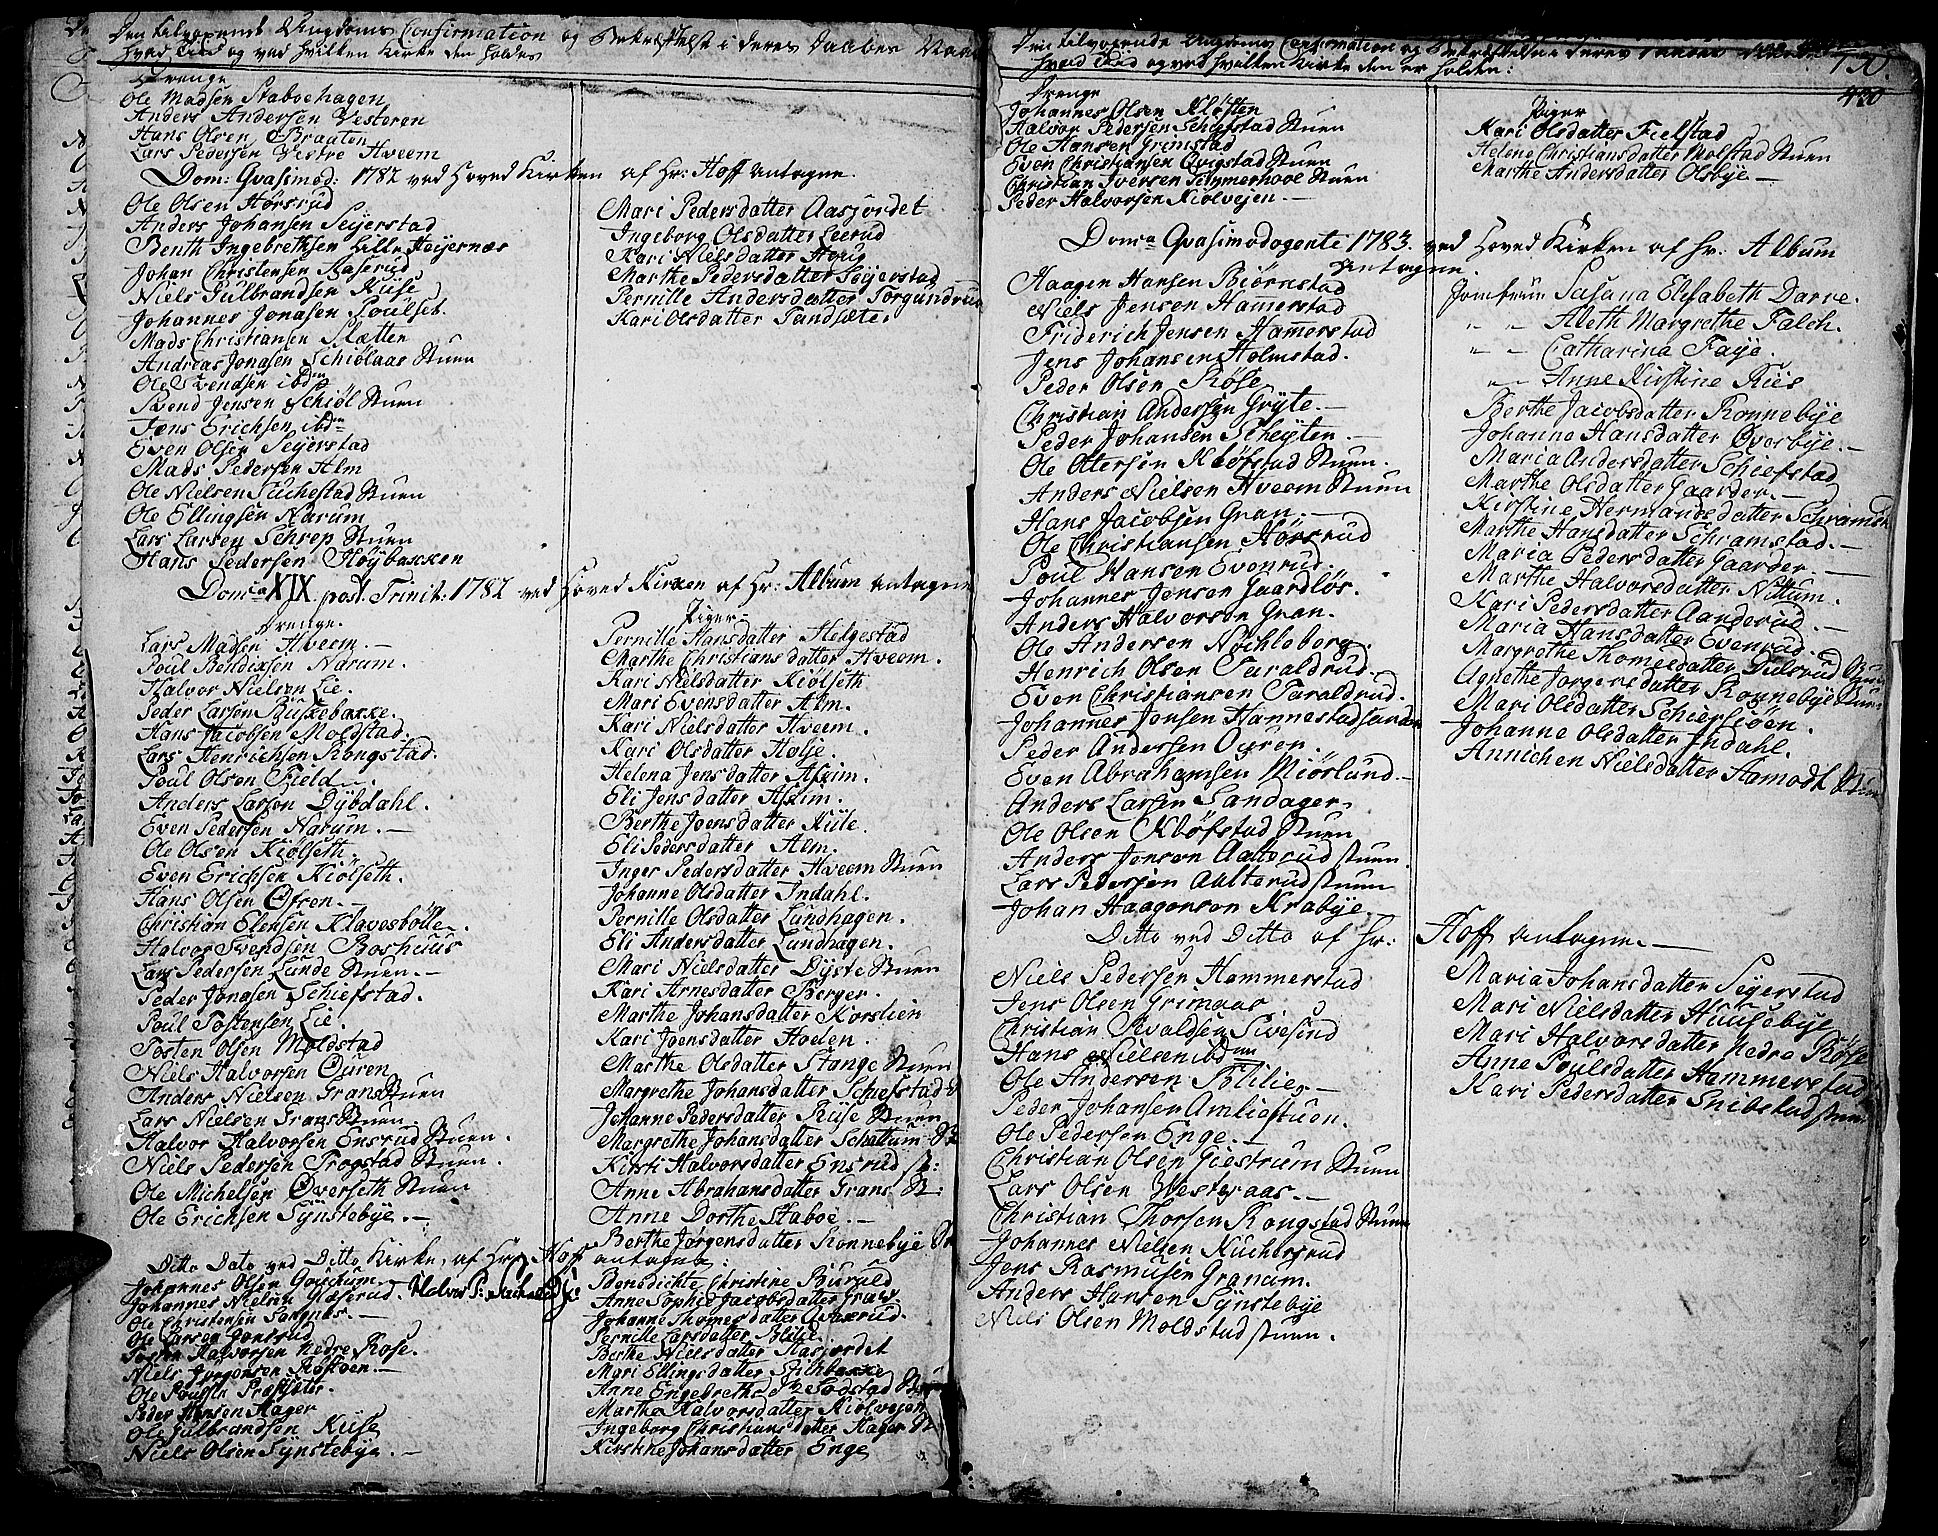 Den tilvoxende Ungdoms Confirmation og Bekræftelse i deres Daabes
hvad Tiid og ved hvilken Kirke den holdes
Drenge
Ole Madsen Staboehagen
Anders Andersen Vesteren
Hans Olsen Braaten
Lars Pedersen Vestre Hveem
Dom: Qvasimod: 1782 ved Hoved Kirken af Hr: Hoff antagne.
Ole Olsen Hørsrud
Anders Johansen Seyerstad
Benth Ingebrethsen Lille Heyernæs
Johan Christensen Aaserud
Niels Gulbrandsen Kuse
Johannes Jonasen Poulset.
Mads Christiansen Slætten
Andreas Jonasen Schiölaas Stuen
Ole Svendsen ibdm
Svend Jensen Schiöl Stuen
Jens Erichsen ibdm
Even Olsen Seyerstad
Mads Pedersen Alm
Ole Nielsen Suchestad Stuen
Ole Ellingsen Narum
Lars Larsen Schrep Stuen
Hans Pedersen Høybakken
Mari Pedersdatter Aasjordet
Ingeborg Olsdatter Leerud
Kari Nielsdatter Houg
Marthe Pedersdatter Seyerstad
Pernille Andersdatter Torgundrud
Kari Olsdatter Sandsæter
Domca XIX post. Trinit. 1782 ved Hoved Kirken af Hr: Album antagne
Drenge.
Lars Madsen Hveem.
Poul Bendixsen Narum.
Halvor Nielsen Lie.
Peder Larsen Buskebakke.
Hans Jacobsen Moldstad.
Lars Henrichsen Rongstad.
Poul Olsen Field
Anders Larsen Dybdahl.
Even Pedersen Narum.
Ole Olsen Kiölseth
Even Erichsen Kiölseth.
Hans Olsen Øfren.
Christian Elensen Klavesbölle.
Halvor Svendsen Boshuus
Lars Pedersen Lunde Stuen.
Peder Jonasen Schiefstad.
Poul Tostensen Lie.
Tosten Olsen Moldstad
Niels Halvorsen Øuren
Anders Nielsen Grans Stuen
Lars Nielsen Grans Stuen
Halvor Halvorsen Ensrud Stuen.
Niels Pedersen Progstad Stuen.
Ole Michelsen Øverseth Stuen
Ole Erichsen Synstebye.
Piger
Pernille Hansdatter Helgestad
Marthe Christiansdatter Hveem.
Kari Nielsdatter Kiölseth
Mari Evensdatter Alm.
Kari Nielsdatter Hveem.
Kari Olsdatter Holje.
Helena Jensdatter Askim.
Eli Jensdatter Askim.
Berthe Joensdatter Kuse.
Eli Pedersdatter Alm.
Inger Pedersdatter Hveem Stuen
Johanne Olsdatter Indahl.
Pernille Olsdatter Lundhagen.
Eli Andersdatter Lundhagen.
Mari Nielsdatter Dyste Stuen
Kari Arnesdatter Berger.
Marthe Johansdatter Korslien
Kari Joensdatter Hoden.
Marthe Olsdatter Stange Stuen
Margrethe Johansdatter Schiefstad
Johanne Pedersdatter Ruse Stuen
Margrethe Johansdatter Schattum
Kirsti Halvorsdatter Ensrud St:
Anne Abrahansdatter Grans St:
Anne Dorthe Staboe.
Berthe Jørgensdatter Ronnebye St
Ditto Dato ved Ditto Kirke, af Hr: Hoff antagne:
Johannes Olsen Gouchum
Johannes Nielsen Næserud.
Ole Christensen
Ole Larsen
Tosten Halvorsen Nedre Röse.
Niels Jørgensen
Ole Poulsen
Peder Hansen Hager
Ole Gulbrandsen Kuse
Niels Olsen Synstebye.
Bensdichte Christine Buruld
Anne Sophie Jacobsdatter Gran
Johanne Thomesdatter
Pernille Larsdatter Blilie
Berthe Nielsdatter Aasjordet
Mari Ellingsdatter
Anne Engebrethsdr Sodstad
Marthe Halvorsdatter Kiolvejen
Ingeborg Christiansdatter Hager St
Kirstine Johansdatter Enge
Den tilvoxende Ungdoms Confirmation og Bekræftelse i deres Daabes
hvad Tiid og ved hvilken Kirke den er holden:
130.
430
Drenge
Johannes Olsen Kløften
Halvor Pedersen Schiefstad Stuen
Ole Hansen Grimstad
Even Christiansen Qvigstad Stuen
Christian Iversen Schymerhool Stuen
Peder Halvorsen Kiolvejen.
Piger
Kari Olsdatter Fielstad
Helene Christiansdatter Molstad Stuen
Marthe Andersdatter Olsbye
Domca Qvasimodogeniti 1783. ved Hoved Kirken af Hr: Album
antagne.
Haagen Hansen Biørnstad
Niels Jensen Hamerstad
Friderich Jensen Hamerstad
Jens Johansen Holmstad.
Peder Olsen Röse
Christian Andersen Gryte.
Peder Johansen Scheyten.
Ole Olersen Klöfstad Stuen.
Anders Nielsen Hveem Stuen
Hans Jacobsen Gran.
Ole Christiansen Hörsrud
Poul Hansen Evenrud.
Johannes Jensen Gaardlös.
Anders Halvorsen Gran.
Ole Andersen Nöchleborg.
Henrich Olsen Paraldrud.
Even Christiansen Paraldrud.
Johannes Jensen Hannestadsanden
Peder Andersen Øuren.
Even Abrahamsen Miörlund.
Anders Larsen Sandager
Ole Olsen Klöfstad Stuen
Anders Jensen Aalterud stuen.
Lars Pedersen Aalterud stuen
Johan Haagensen Krabye
Jomfrue Susana Elisabeth Darre.
" " Aleth Margrethe Falch.
" " Catharina Faye.
" " Anne Kirstine Riis
Berthe Jacobsdatter Ronnebye
Johanne Hansdatter Øverbye.
Maria Andersdatter Schiefstad
Marthe Olsdatter Gaarder.
Kirstine Hermansdatter Schramstad
Marthe Hansdatter Schramstad.
Maria Pedersdatter Gaarder.
Marthe Halvorsdatter Nittum.
Kari Pedersdatter Aanderud.
Maria Hansdatter Evenrud.
Margrethe Thomesdatter Dulsrud
Agnethe Jørgensdatter Ronnebye Stuen
Mari Olsdatter Schiersiöen.
Johanne Olsdatter Indahl.
Annichen Nielsdatter Aamodt
Ditto ved Ditto af Hr: Hoff antagne.
Niels Pedersen Hammerstad
Jens Olsen Grimaas
Christian Sivaldsen Sivesind
Hans Nielsen ibdm
Ole Andersen Polilie
Peder Johansen Amlistuen.
Ole Pedersen Enge.
Christian Olsen Giestrum Stuen
Lars Olsen Westeraas.
Christian Thorsen Rongstad Stuen
Johannes Nielsen Kuchersrud
Jens Rasmusen Granum.
Anders Hansen Synstebye
Niels Olsen Moldstad stuen.
Maria Johansdatter Seyerstad
Mari Nielsdatter Huusebye
Mari Halvorsdatter Nedre Röse
Anne Poulsdatter Hammerstad
Kari Pedersdatter Snibstad stuen